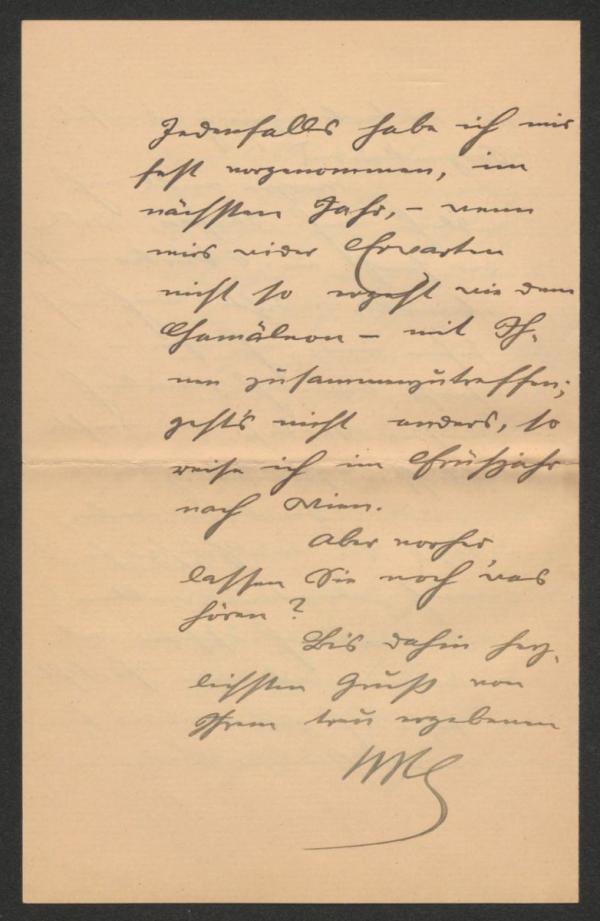 Jedenfalls habe ich mir
fest vorgenommen, im
nächsten Jahr, – wenn
mirs wider Erwarten
nicht so ergeht wie dem
Chamäleon – mit Ih-
nen zusammenzutreffen;
geht's nicht anders, so
reise ich im Frühjahr
nach Wien.
Aber vorher
lassen Sie noch 'was
hören?
Bis dahin herz-
lichsten Gruß von
Ihrem treu ergebenen